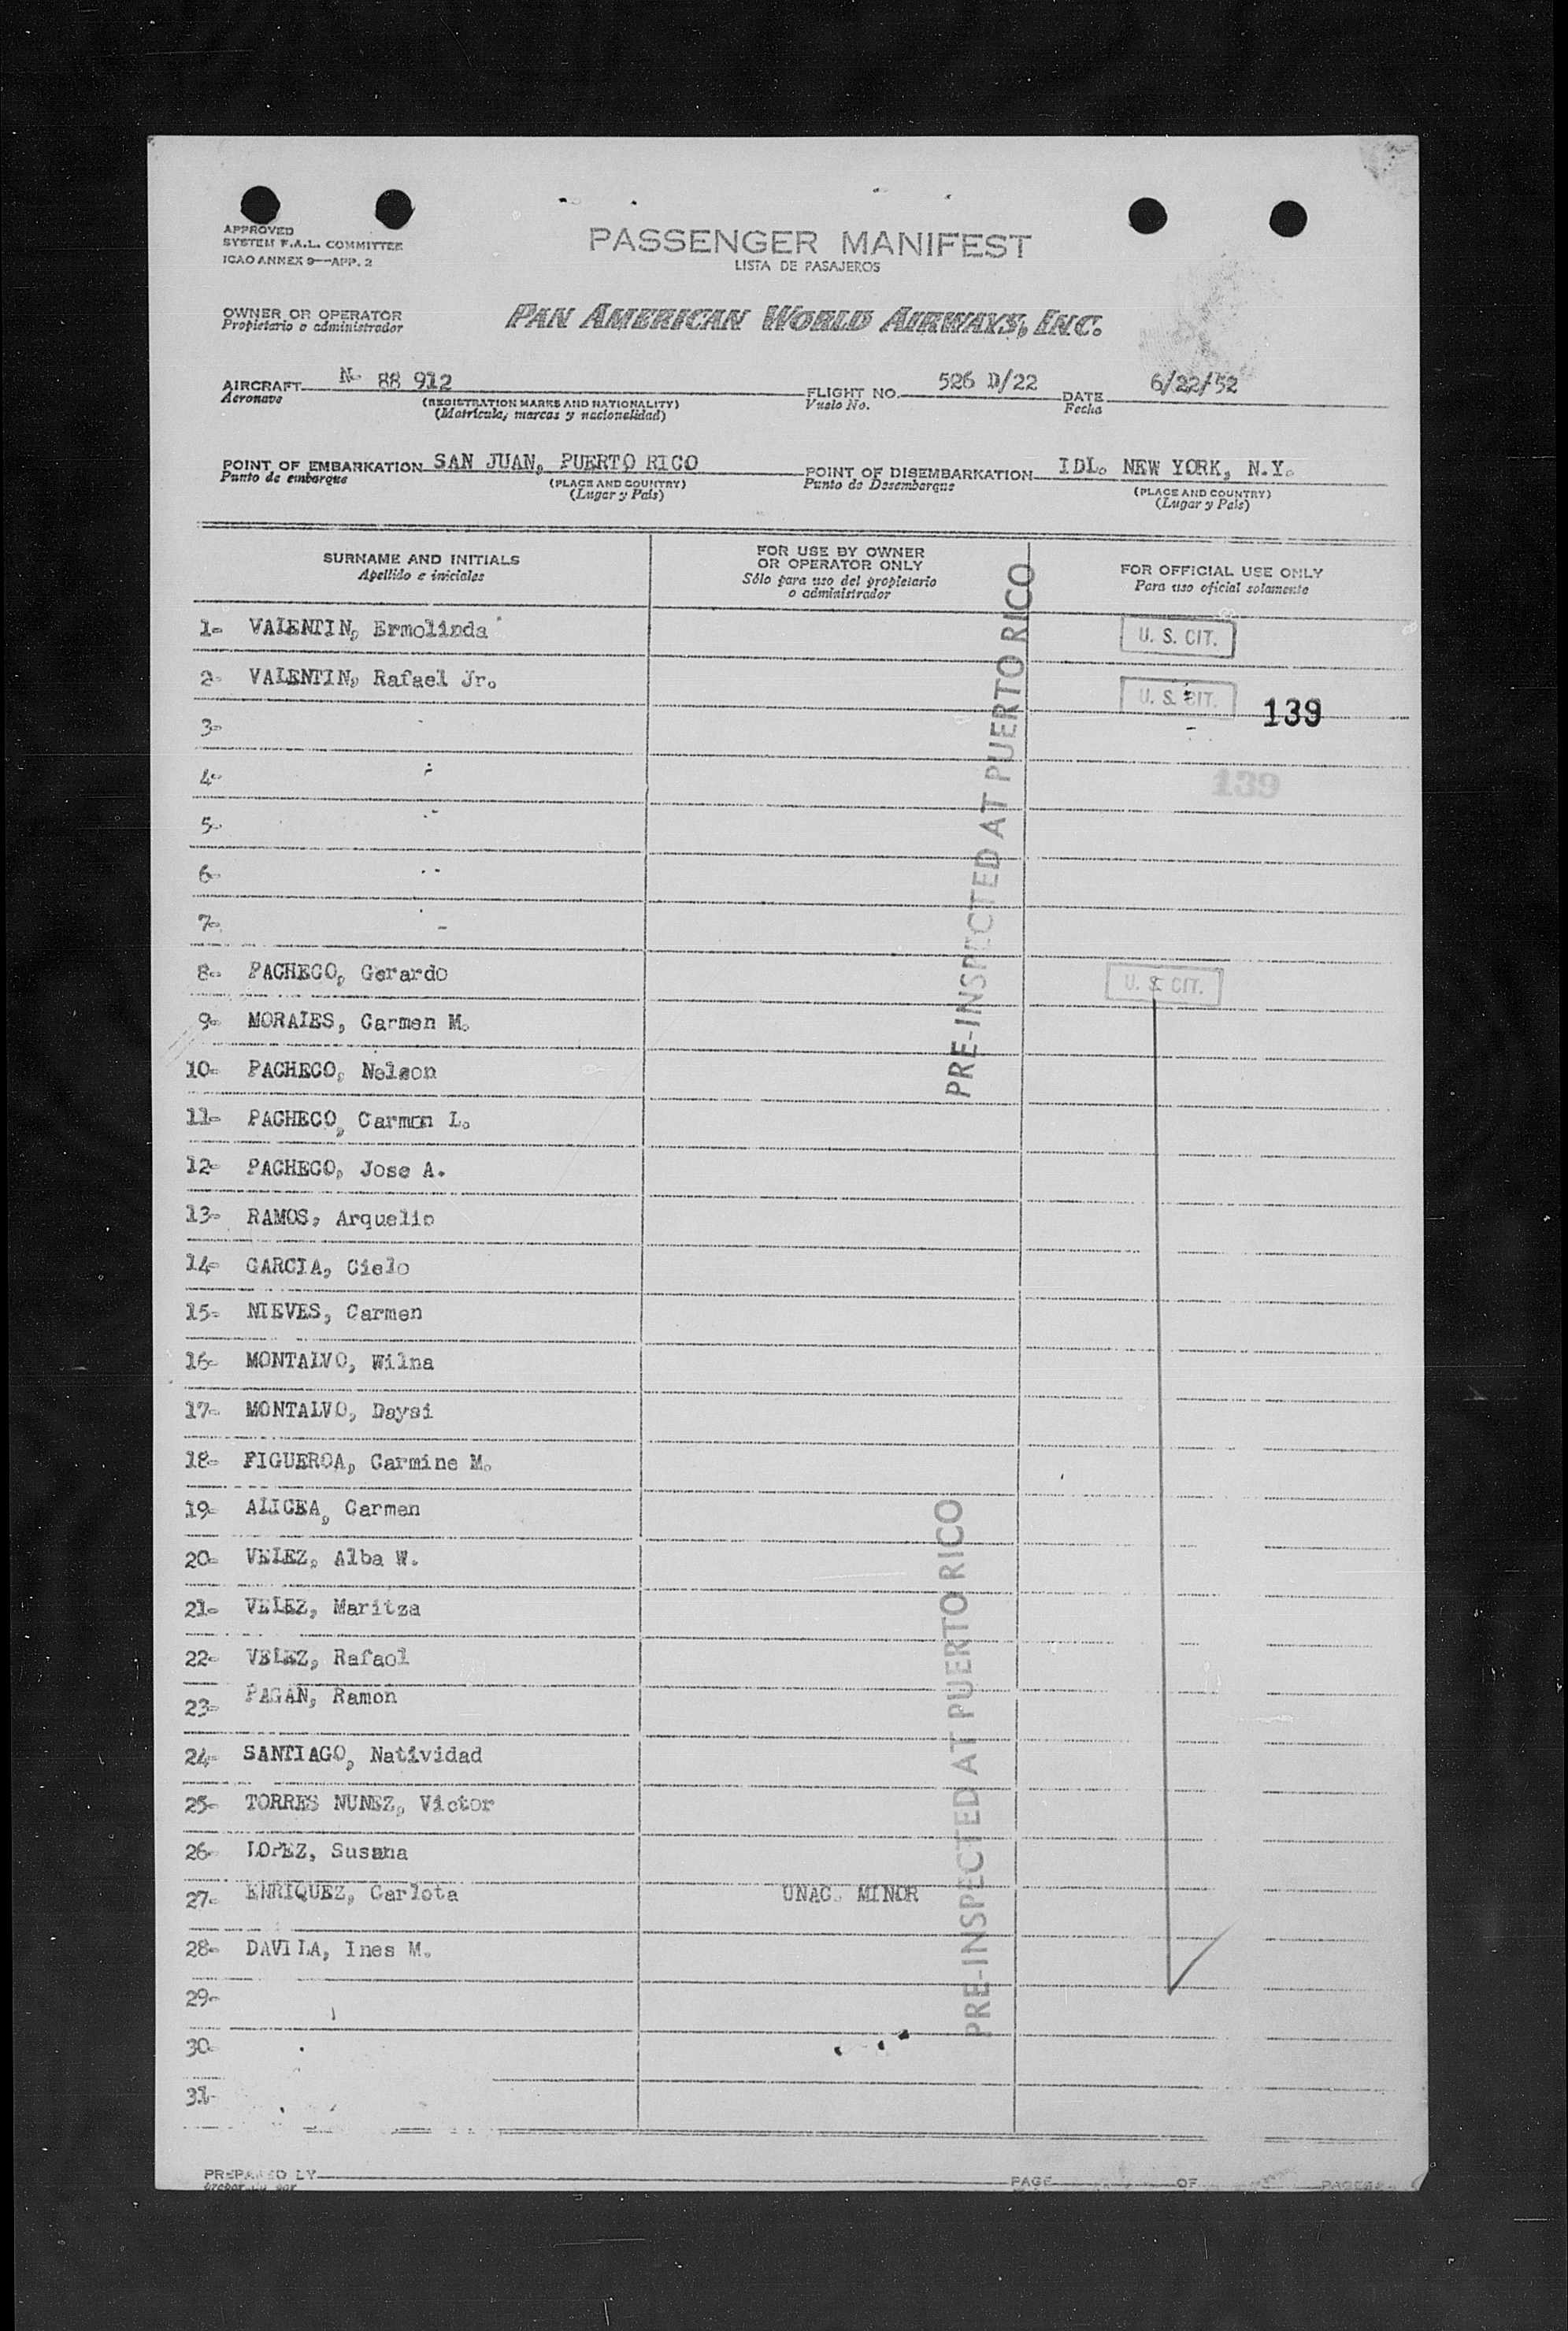 APPROVED
SYSTEM F.A.L. COMMITTEE
ICAO ANNEX 9—APP. 2
PASSENGER MANIFEST
LISTA DE PASAJEROS
OWNER OR OPERATOR
Propietario o administrador
PAN AMERICAN WORLD AIRWAYS, INC.
AIRCRAFT N- 88 912
Aeronave
(REGISTRATION MARKS AND NATIONALITY)
(Matrícula, marcas y nacionalidad)
FLIGHT NO. 526 D/22
Vuelo No.
DATE 6/22/52
Fecha
POINT OF EMBARKATION SAN JUAN, PUERTO RICO
Punto de embarque
(PLACE AND COUNTRY)
(Lugar y País)
POINT OF DISEMBARKATION IDL. NEW YORK, N.Y.
Punto de Desembarque
(PLACE AND COUNTRY)
(Lugar y País)
SURNAME AND INITIALS
Apellido e iniciales
FOR USE BY OWNER
OR OPERATOR ONLY
Sólo para uso del propietario
o administrador
FOR OFFICIAL USE ONLY
Para uso oficial solamente
1- VALENTIN, Ermolinda U. S. CIT.
2- VALENTIN, Rafael Jr. U. S. CIT. 139
3-
4- 139
5-
6-
7-
8- PACHECO, Gerardo U. S. CIT.
9- MORALES, Carmen M.
10- PACHECO, Nelson
11- PACHECO, Carmen L.
12- PACHECO, Jose A.
13- RAMOS, Arquelio
14- GARCIA, Cielo
15- NIEVES, Carmen
16- MONTALVO, Wilna
17- MONTALVO, Daysi
18- FIGUEROA, Carmine M.
19- ALICEA, Carmen
20- VELEZ, Alba W.
21- VELEZ, Maritza
22- VELEZ, Rafael
23- PAGAN, Ramon
24- SANTIAGO, Natividad
25- TORRES NUNEZ, Victor
26- LOPEZ, Susana
27- ENRIQUEZ, Carlota UNAC. MINOR
28- DAVILA, Ines M.
29-
30-
31-
PRE-INSPECTED AT PUERTO RICO
PRE-INSPECTED AT PUERTO RICO
PREPARED BY
PAGE OF PAGES